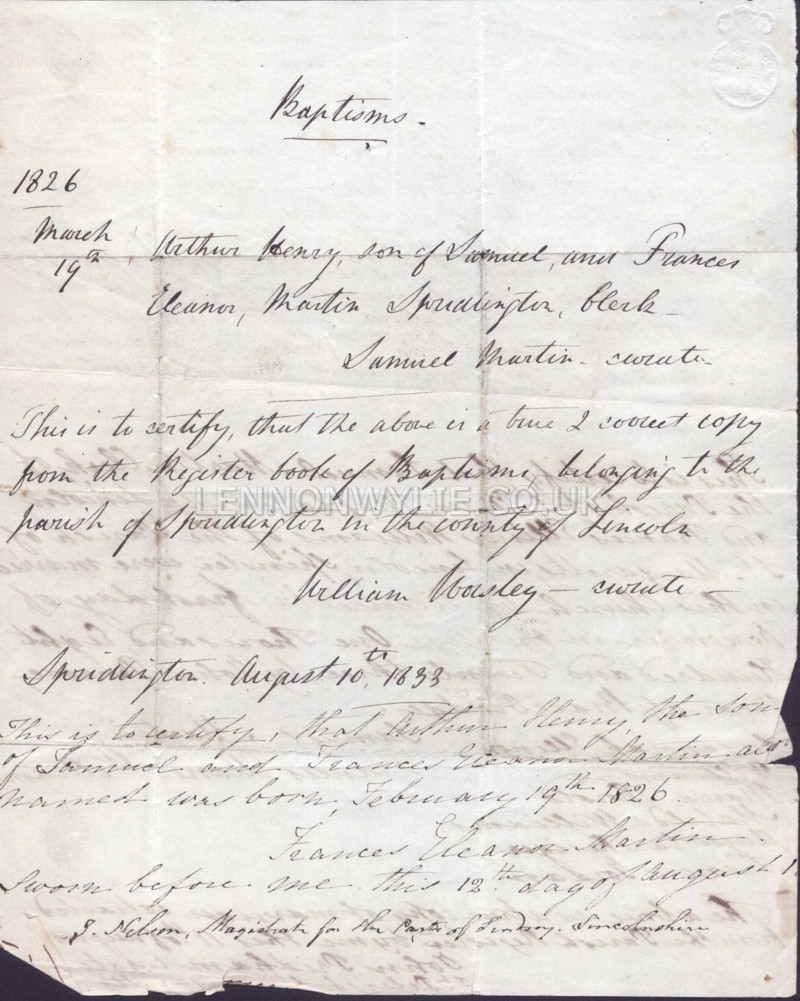 Baptisms.
1826
March
19th
Arthur Henry, son of Samuel, and Frances
Eleanor, Martin Spridlington, Clerk
Samuel Martin - curate
This is to certify, that the above is a true & correct copy
from the Register book of Baptisms, belonging to the
LENNONWYLIE.CO.UK
parish of Spridlington in the county of Lincoln
William Worsley - curate -
Spridlington. August 10th 1833
This is to certify, that Arthur Henry, the son
of Samuel and Frances Eleanor Martin
named was born, February 19th 1826.
Frances Eleanor Martin.
Sworn before me this 12th day of August
J. Nelson, Magistrate for the Parts of Lindsey. Lincolnshire